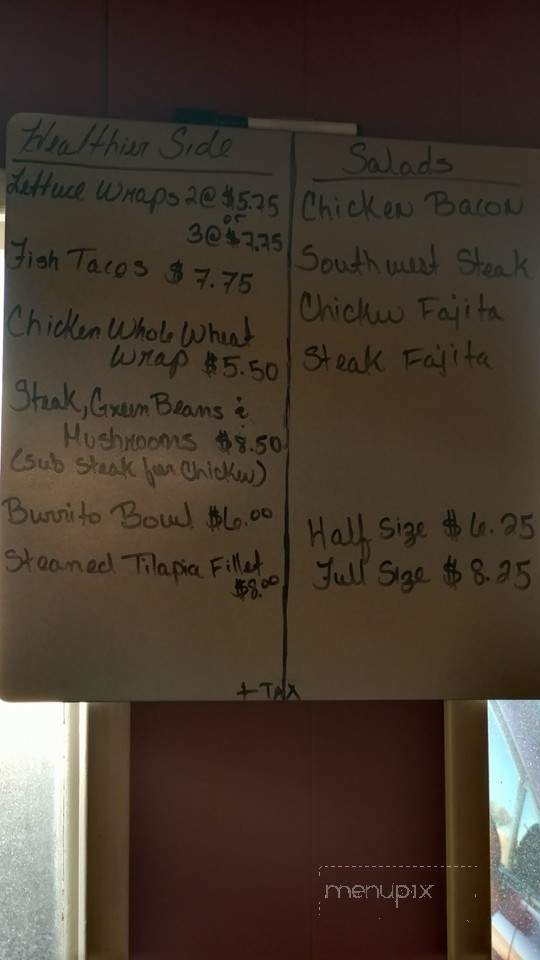 Healthier Side
Lettuce Wraps 2@ $5.75
or
3@ $7.75
Fish Tacos $7.75
Chicken Whole Wheat
Wrap $5.50
Steak, Green Beans &
Mushrooms $8.50
(sub steak for chicken)
Burrito Bowl $6.00
Steamed Tilapia Fillet
$8.00
Salads
Chicken Bacon
Southwest Steak
Chicken Fajita
Steak Fajita
Half Size $6.25
Full Size $8.25
+ TAX
menupix